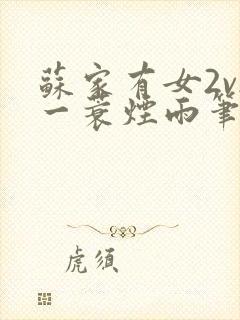 蘇家有女2v
一蓑煙雨筆
虎須